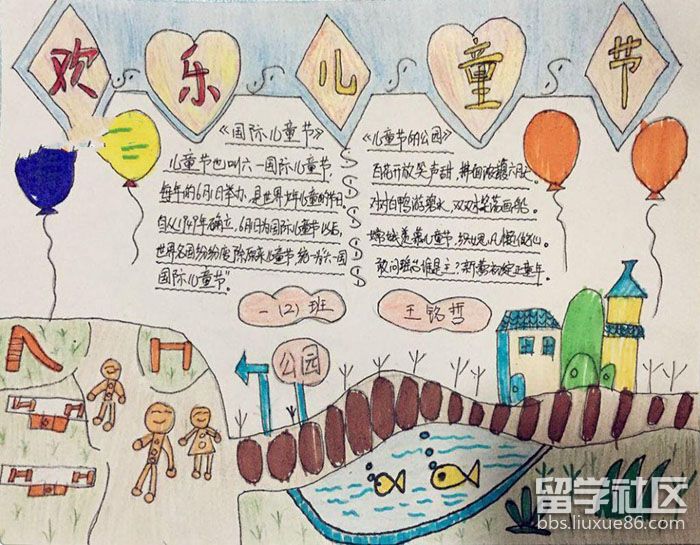 欢乐儿童节
《国际儿童节》
儿童节也叫六一国际儿童节,
每年的6月1日举办,是世界少年儿童的节日。
自从1949年确立,6月1日为国际儿童节以后,
世界各国纷纷废除原来儿童节,统一为"六一国
国际儿童节"。
《儿童节的公园》
百花开放笑声甜,
对对白鸭游碧水,双双
儿童节,
敢问谁是主?
一(2)班
王铭哲
公园
留学社区
bbs.liuxue86.com